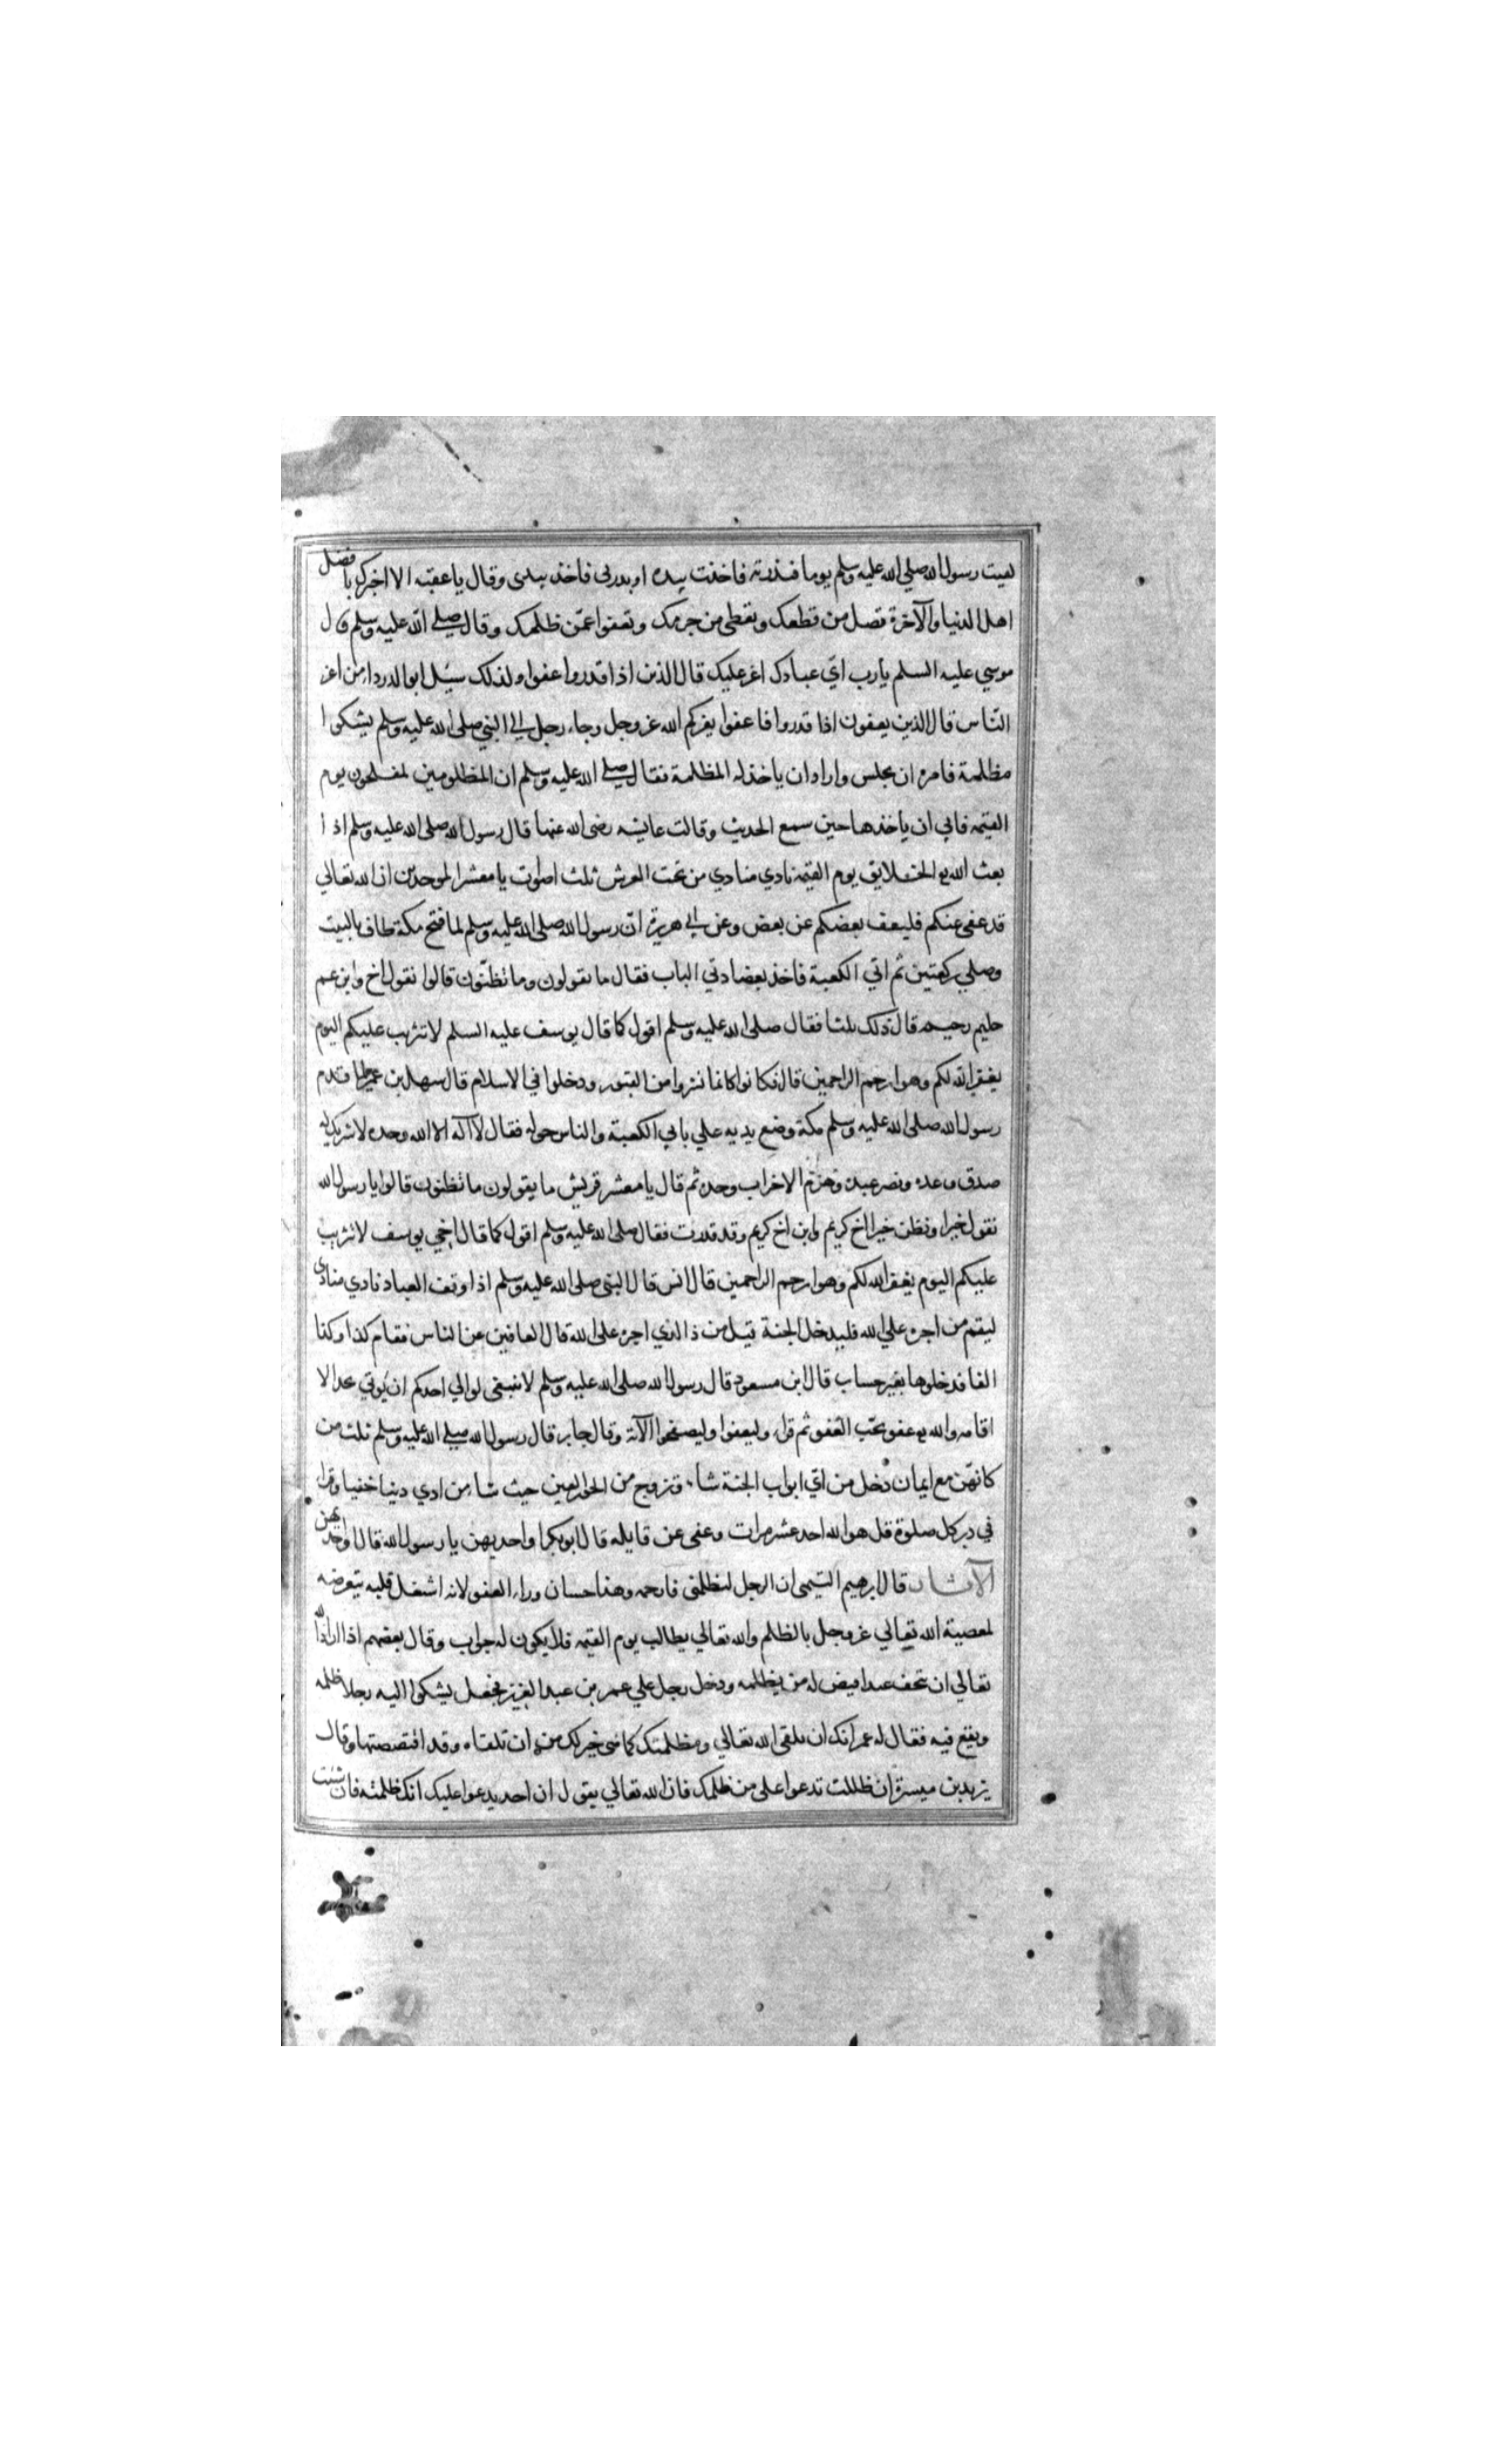 لقيت رسول الله صلي الله عليه وسلم يوما فبدرته فاخذت بيده او بدرني فاخذ بيدي وقال يا عقبه الا اخبرك بافضل
اهل الدنيا والآخرة تصل من قطعك وتعطي من حرمك وتعفوا عمّن ظلمك وقال صلي الله عليه وسلم قال
موسي عليه السلم يا رب ايّ عبادك اعز عليك قال الذين اذا قدروا عفوا ولذلك سئل ابو الدرداء من اعز
النّاس قال الذين يعفون اذا قدروا فاعفوا يعزكم الله عز وجل وجاء رجل الي النبي صلي الله عليه وسلم يشكوا
مظلمة فامره ان يجلس واراد ان ياخذ له المظلمة فقال صلي الله عليه وسلم ان المظلومين لمفلحون يوم
القيمه فابي ان ياخذها حين سمع الحديث وقالت عايشه رضي الله عنها قال رسول الله صلي الله عليه وسلم اذا
بعث الله الخلايق يوم القيمة نادي منادي من تحت العرش ثلث اصوات يا معشر الموحدين ان الله تعالي
قد عفي عنكم فليعف بعضكم عن بعض وعن ابي هريرة انّ رسول الله صلي الله عليه وسلم لما فتح مكة طاف بالبيت
وصلي ركعتين ثم اتي الكعبة فاخذ بعضادتي الباب فقال ما تقولون وما تظنّون قالوا نقول اخ وابن عم
حليم رحيم قال ذلك ثلثا فقال صلي الله عليه وسلم اقول كما قال يوسف عليه السلم لا تثريب عليكم اليوم
يغفر الله لكم وهو ارحم الراحمين قال فكانوا كانما نشروا من القبور ودخلوا في الاسلام قال سهيل بن عمرو لما قدم
رسول الله صلي الله عليه وسلم مكة وضع يديه علي بابي الكعبة والناس حوله فقال لا اله الا الله وحده لا شريك له
صدق وعده ونصر عبده وهزم الاحزاب وحده ثم قال يا معشر قريش ما يقولون ما تظنون قالوا يا رسول الله
نقول خيرا ونظن خيرا اخ كريم وابن اخ كريم وقد قدرت فقال صلي الله عليه وسلم اقول كما قال اخي يوسف لا تثريب
عليكم اليوم يغفر الله لكم وهو ارحم الراحمين قال انس قال النبي صلي الله عليه وسلم اذا وقف العباد نادي منادي
ليقم من اجره علي الله فليدخل الجنة قيل من ذا الذي اجره علي الله قال العافين عن الناس فقام كذا وكذا
الفا فدخلوها بغير حساب قال ابن مسعود قال رسول الله صلي الله عليه وسلم لا ينبغي لوالي احدكم ان يُوتي بحد الا
اقامه والله عفو يحّب العفو ثم قراء وليعفوا وليصفحوا الآية وقال جابر قال رسول الله صلي الله عليه وسلم ثلث من
كانهّن مع ايمان دخل من ايّ ابواب الجنة شاء وتزوج من الحور العين حيث شاء من ادي دينا خفيا وقرا
في دبر كل صلوة قل هو الله احد عشر مرات وعفي عن قاتله قال ابو بكر او احديهن يا رسول الله قال او احديهن
الآثار قال ابرهيم التيمي ان الرجل ليظلمني فارحمه وهذا احسان وراء العفو لانه اشغل قلبه بتعرضه
لمعصية الله تعالي عز وجل بالظلم والله تعالي يطالب يوم القيمه فلا يكون له جواب وقال بعضهم اذا اراد الله
تعالي ان يتحف عبدا قيض له من يظلمه ودخل رجل علي عمر بن عبد العزيز فجعل يشكوا اليه رجلا ظلمه
ويقع فيه فقال له عمر انك ان تلقي الله تعالي ومظلمتك كما هي خير لك من ان تلقاه وقد اقتصصتها وقال
يزيد بن ميسرة ان ظللت تدعوا علي من ظلمك فان الله تعالي يقول ان احد يدعوا عليك انك ظلمته فان شئت